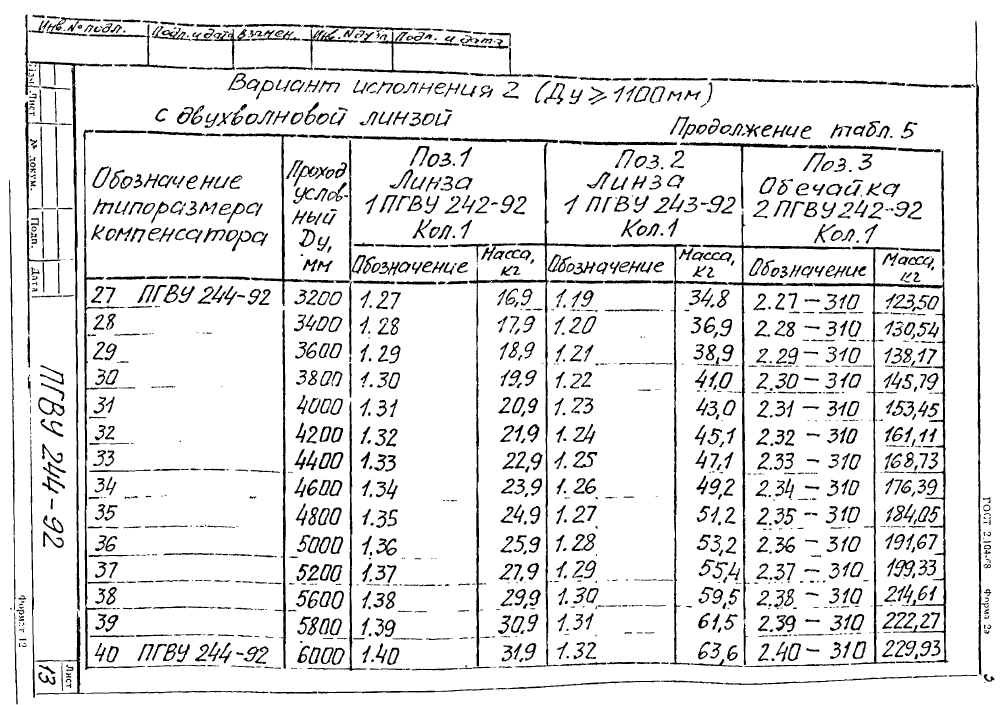 Инв. № подл. Подп. и дата Взамен. Инв. № дубл. Подп. и дата
Вариант исполнения 2 (Ду ≥ 1100мм)
с двухволновой линзой
Продолжение табл. 5
Обозначение типоразмера компенсатора
Проход условный Ду, мм
Поз. 1 Линза 1 ПГВУ 242-92 Кол. 1
Поз. 2 Линза 1 ПГВУ 243-92 Кол. 1
Поз. 3 Обечайка 2 ПГВУ 242-92 Кол. 1
Обозначение Масса, кг Обозначение Масса, кг Обозначение Масса, кг
27 ПГВУ 244-92 3200 1.27 16,9 1.19 34.8 2.27 – 310 123,50
28 3400 1.28 17,9 1.20 36,9 2.28 – 310 130,54
29 3600 1.29 18,9 1.21 38,9 2.29 – 310 138,17
30 3800 1.30 19,9 1.22 41,0 2.30 – 310 145,79
31 4000 1.31 20,9 1.23 43,0 2.31 – 310 153,45
32 4200 1.32 21,9 1.24 45,1 2.32 – 310 161,11
33 4400 1.33 22,9 1.25 47,1 2.33 – 310 168,73
34 4600 1.34 23,9 1.26 49,2 2.34 – 310 176,39
35 4800 1.35 24,9 1.27 51,2 2.35 – 310 184,05
36 5000 1.36 25,9 1.28 53,2 2.36 – 310 191,67
37 5200 1.37 27,9 1.29 55,4 2.37 – 310 199,33
38 5600 1.38 29,9 1.30 59,5 2.38 – 310 214,61
39 5800 1.39 30,9 1.31 61,5 2.39 – 310 222,27
40 ПГВУ 244-92 6000 1.40 31,9 1.32 63,6 2.40 – 310 229,93
Изм Лист № докум. Подп. Дата
ПГВУ 244-92
Лист
13
Формат 12
ГОСТ 2.104-68 Форма 2а
3